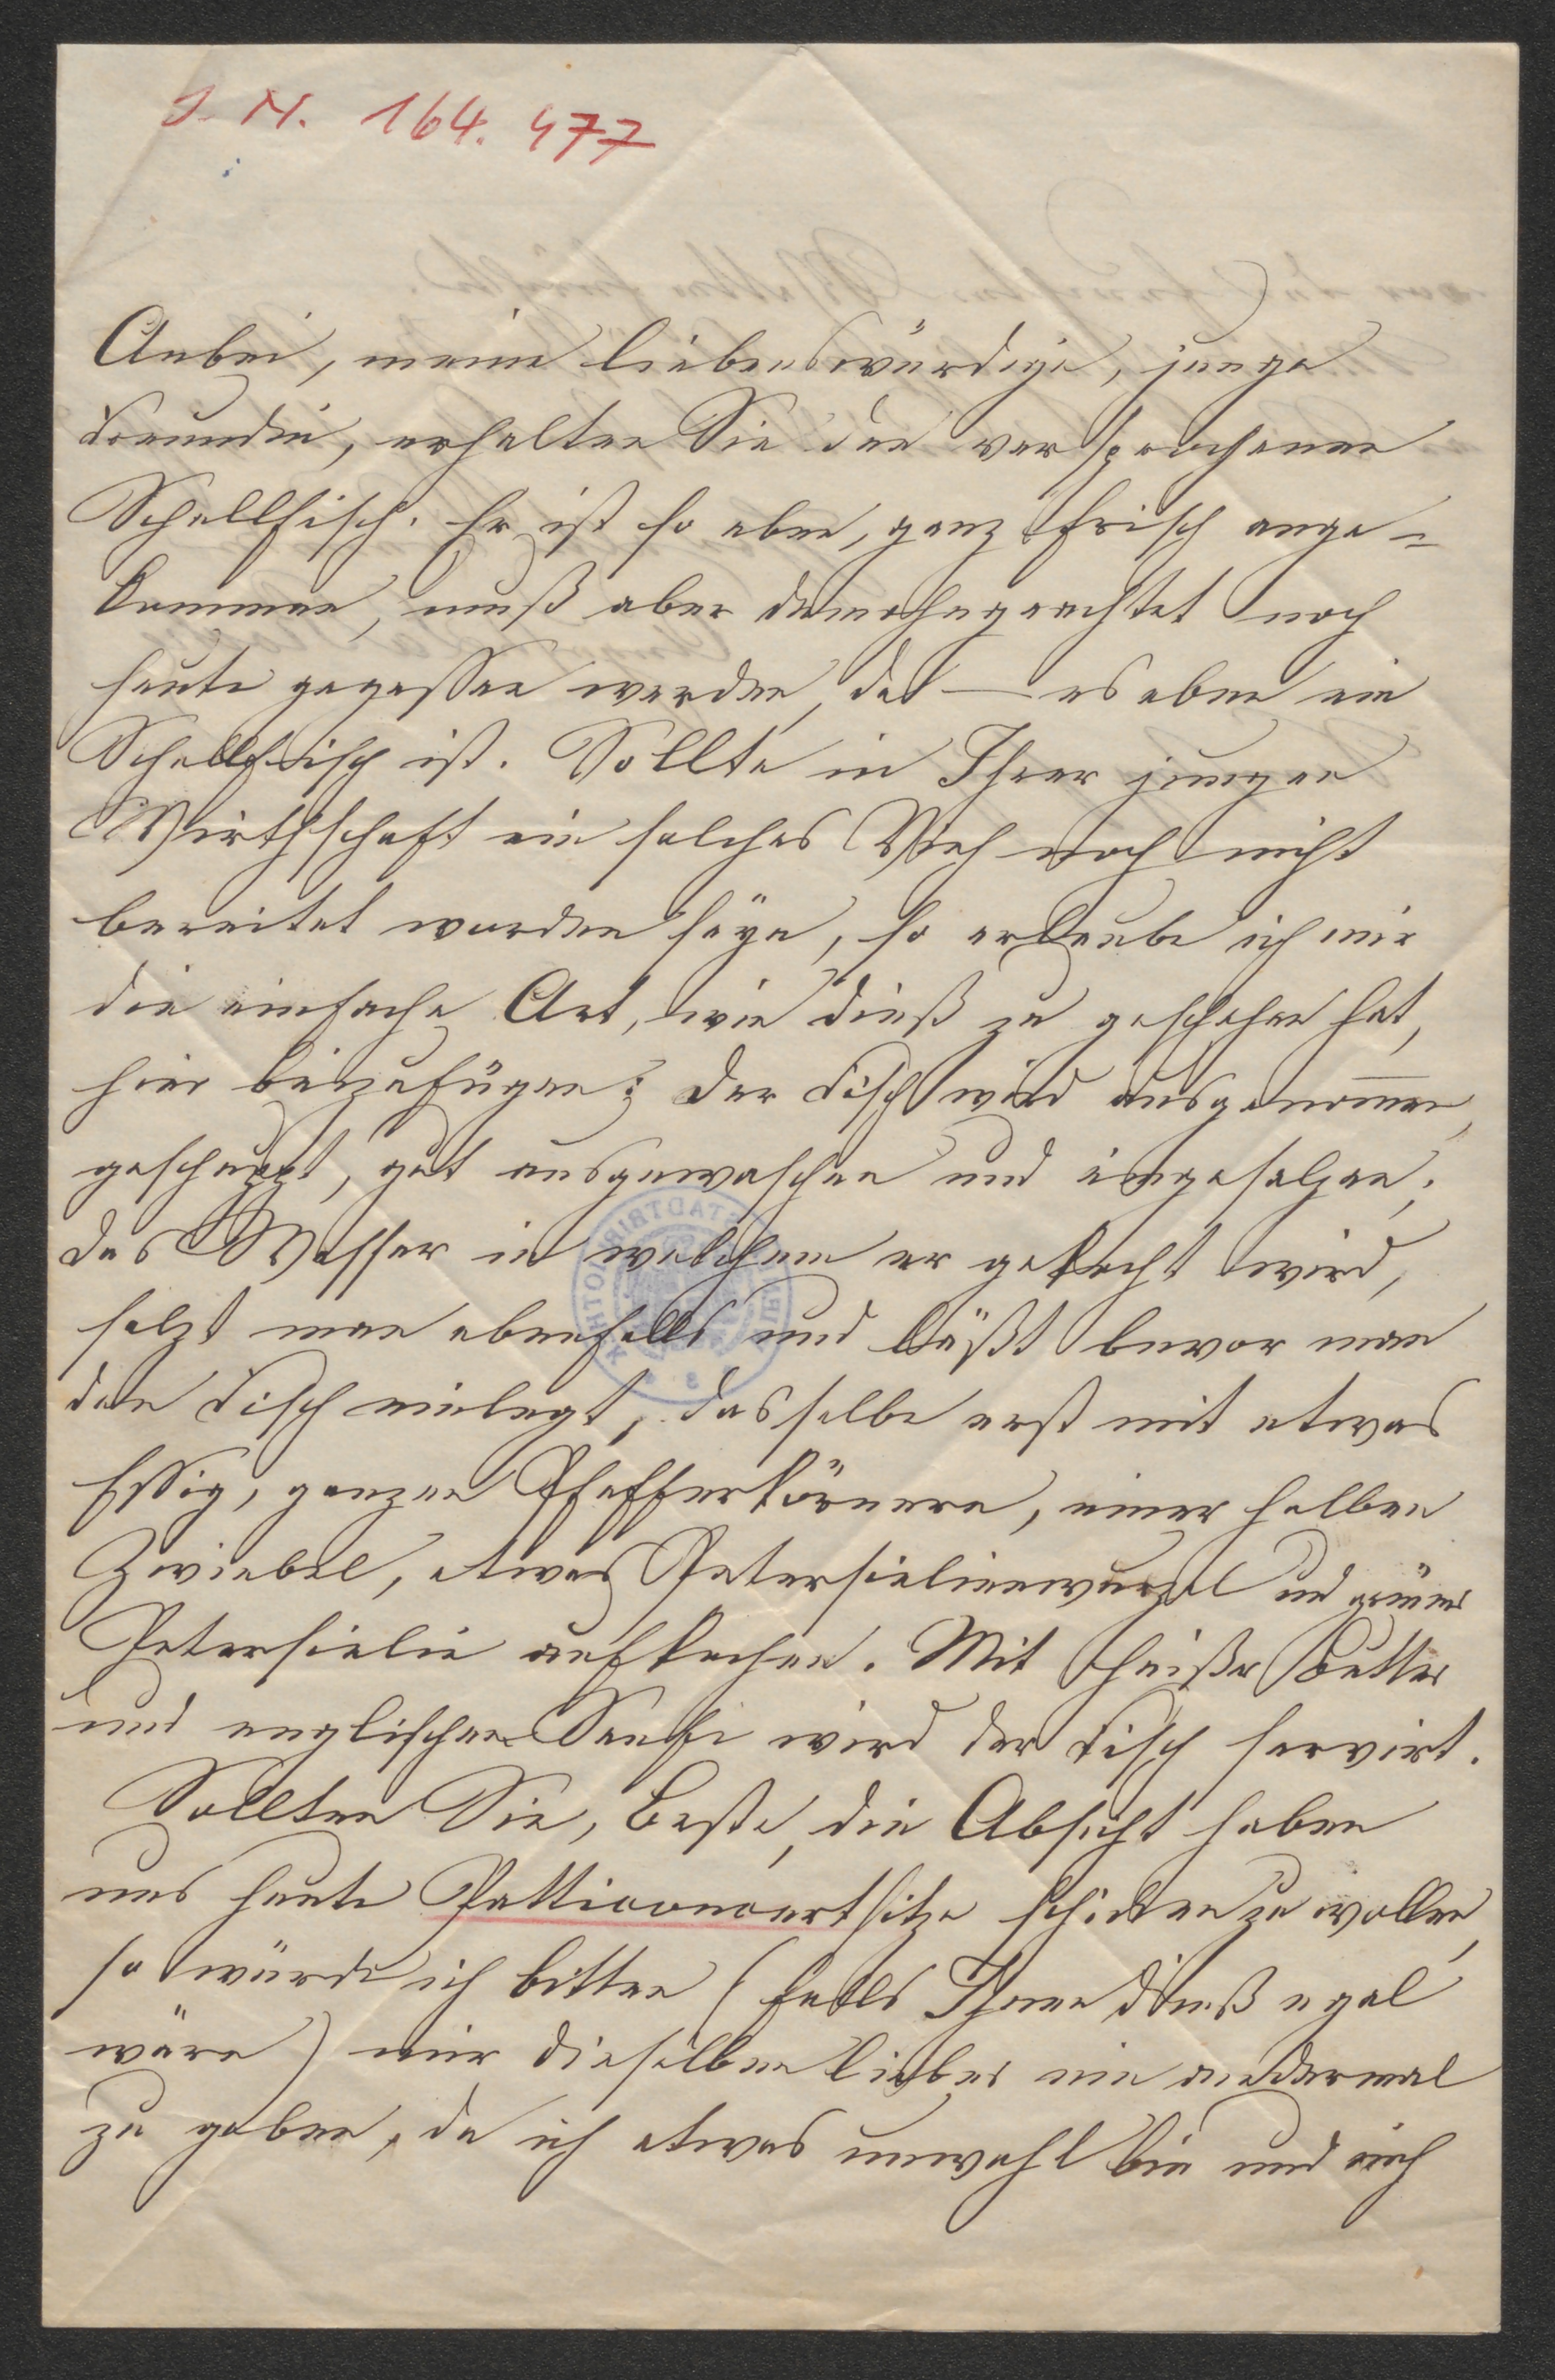 I. N. 164.477
Anbei, meine liebenswürdige, junge
Freundin, erhalten Sie den versprochenen
Schellfisch. Er ist so eben, ganz frisch ange=
kommen, muß aber demohngeachtet noch
heute gegessen werden, da — es eben ein
Schellfisch ist. Sollte in Ihrer jungen
Wirthschaft ein solches Vieh noch nicht
bereitet worden seyn, so erlaube ich mir
die einfache Art, wie dieß zu geschehen hat,
hier beizufügen: Der Fisch wird ausgenom̅en,
geschuppt, gut ausgewaschen und eingesalzen;
das Wasser in welchem er gekocht wird,
salzt man ebenfalls und läßt bevor man
den Fisch einlegt, dasselbe erst mit etwas
Essig, ganzen Pfefferkörnern, einer halben
Zwiebel, etwas Petersielienwurzel und grüner
Petersielie aufkochen. Mit heißer Butter
und englischen Senfe wird der Fisch servirt.
Sollten Sie, Beste, die Absicht haben
uns heute Patticoncertsitze schicken zu wollen,
so würde ich bitten (falls Ihnen dieß egal
wäre) mir dieselben lieber ein andermal
zu geben, da ich etwas unwohl bin und auch